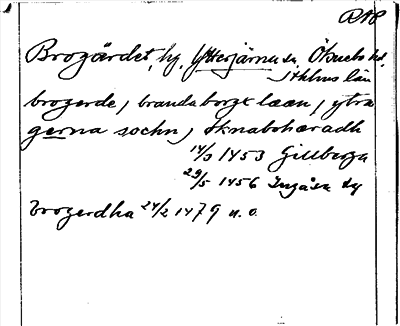 RAP
Brogärdet, by, Ytterjärna sn, Öknebo hd,
Sthlms län
brogerde, brandaborgx læn, ytra
gerna sochn, øknabohæradh
14/3 1453 Gillberga
29/5 1456 Ingåsa by
brogerdha 24/2 1479 u. o.